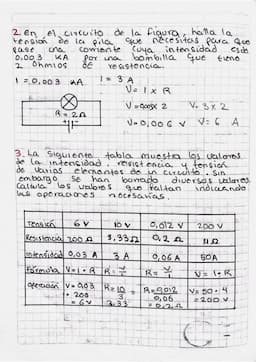 2. En el circuito de la figura, halla la
tensión de la pila que necesitas para que
pase una corriente cuya intensidad sea
0.003 KA por una bombilla que tiene
2 Ohmios de resistencia.
I = 0.003 KA I = 3 A
V = I x R
R = 2Ω V = 0.003 x 2 V = 3 x 2
V = 0,006 V V = 6 A
3. La siguiente tabla muestra los valores
de la intensidad, resistencia y tensión
de varios elementos de un circuito. Sin
embargo se han borrado diversos valores
calcula los valores que faltan indicando
las operaciones necesarias.
Tensión 6 V 10 V 0,012 V 200 V
Resistencia 200 Ω 3.33 Ω 0,2 Ω 4 Ω
Intensidad 0.03 A 3 A 0,06 A 50A
Fórmula V = I · R R = V/I R = V/I V = I · R
Operación V = 0,03 · 200 = 6 V R = 10/3 = 3.33 R = 0,012/0,06 = 0,2 Ω V = 50 · 4 = 200 V